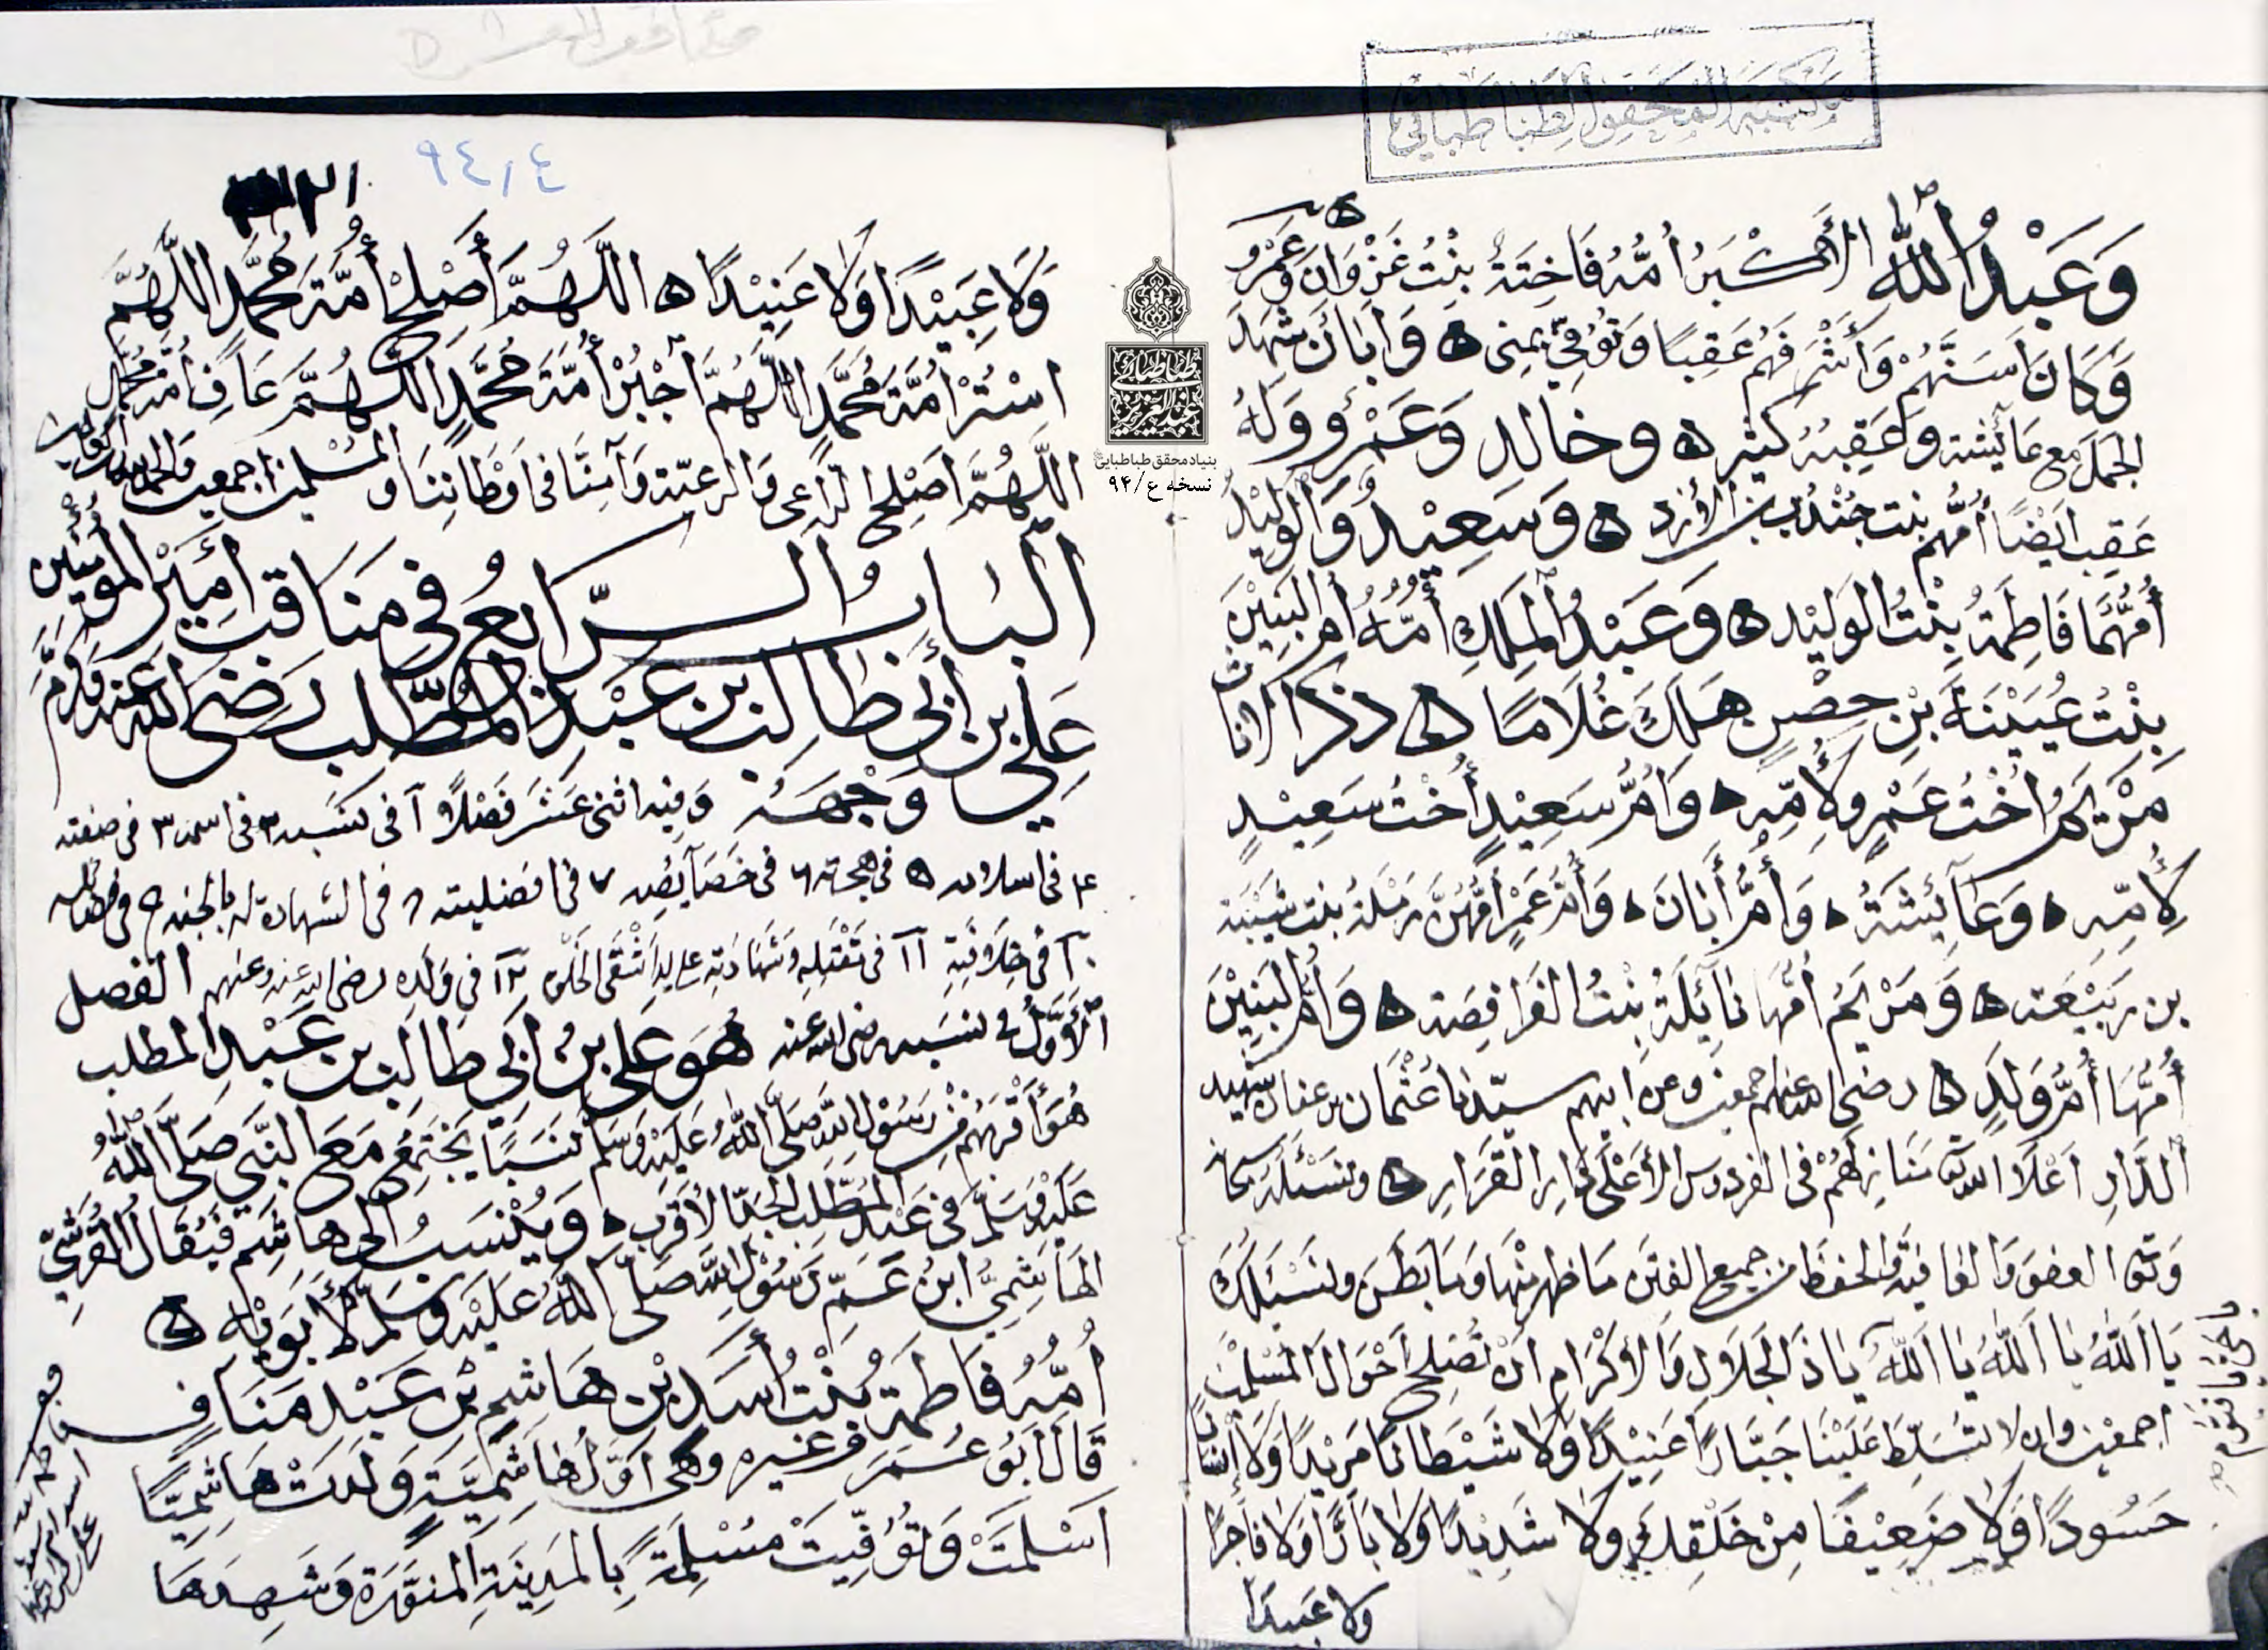 مكتبة المحقق الطباطبائي
وَعَبْدُ اللّٰه الأَكْبَرُ أُمُّهُ فَاخِتَةُ بِنْتُ غَزْوَانَ وَعَمْرو
وَكَانَ أَسَنَّهُمْ وَأَشْرَفَهُمْ عَقِبًا وَتُوُفِّيَ بِمِنى وَأَبَانَ شَهِدَ
الجَمَلَ مَعَ عَائِشَة وَعَقِبُهُ كثير وخالد وَعَمْرو وَلَهُ
عَقِب اَيْضًا أُمُّهُم بنت جُنْدُب بن الأَزد وَسَعِيْدُ وَالْوَلِيْدُ
أُمُّهُمَا فَاطِمَةُ بِنْتُ الوَلِيْد وَعَبْدُ الْمَلِكِ أُمُّهُ أُم الْبَنِيْنَ
بِنْتُ عُيَيْنَةَ بْنِ حِصْنٍ هَلَكَ غُلَامًا ذكر الاناث
مَرْيَمُ أُخْتُ عَمْرٍو لِأُمِّهِ وَأُمُّ سَعِيْدٍ أُخْتُ سَعِيْدٍ
لِأُمِّهِ وَعَائِشَةُ وَأُمُّ أَبَانَ وَأُمُّ عَمْرٍو أُمُّهُنَّ رَمْلَةُ بنت شَيْبَة
بن رَبِيْعَة وَمَرْيَمُ أُمُّهَا نَائِلَةُ بِنْتُ الفَرَافِصَة وَأُمُّ الْبَنِيْنَ
أُمُّهَا أُمُّ وَلَدٍ رضى الله عنهم اجمعين وعن ابيهم سيّدنا عُثْمَان بن عفان شهيد
الدَّارِ اَعْلَا الله مَنَازِلَهُمْ فى الفردوس الأَعْلَى دَارِ القَرَارِ ونسئله سبحانه
وتعالى العفو وَالعَافِيَة وَالحفظ من جميع الفتن مَا ظهر مِنْهَا وَمَا بَطَنَ ونَسْئَلُكَ
يَا اَللّٰهُ يَا اَللّٰهُ يَا اَللّٰهُ يَا ذَا الْجَلَالِ وَالاِكْرَامِ اَنْ تُصْلِحَ اَحْوَالَ الْمُسْلِمِيْنَ
اجمعين وان لا تُسَلِّطَ عَلَيْنَا جَبَّارًا عَنِيْدًا وَلَا شَيْطَانًا مَرِيْدًا وَلَا إِنْسَانًا
حَسُودًا وَلَا ضَعِيْفًا مِنْ خَلْقِكَ وَلَا شَدِيْدًا وَلَا بَارًّا وَلَا فَاجِرًا
ولا عبيدا
٩٤/٤
وَلَا عَبِيْدًا وَلَا عَنِيْدًا اَللّٰهُمَّ أَصْلِحْ أُمَّةَ مُحَمَّدٍ اللّٰهُمَّ
اسْتُرْ اُمَّةَ مُحَمَّدٍ اللّٰهُمَّ اجْبُرْ أُمَّةَ مُحَمَّدٍ اَللّٰهُمَّ عَافِ أُمَّةَ مُحَمَّد
اَللّٰهُمَّ اصْلِحِ الرَّاعِى وَالرَّعِيَّة وَآمِنَّا فى اَوْطَانِنَا وَالمُسْلِمِيْنَ اجمعين والحمد لله
اَلْبَابُ الرَّابِعُ فِي مَنَاقِبِ أَمِيْرِ الْمُؤمِنِيْن
عَلِي بن أَبِي طَالِب بن عَبْدِ الْمُطَّلِب رَضِىَ اللّٰه عَنه وَكَرَّمَ
وَجْهَهُ وَفيه اثنى عَشَرَ فَصْلًا ١ فى نسَبه ٢ فى اسمه ٣ فى صفته
٤ فى اسلامه ٥ فى هجرته ٦ فى خَصَائِصِه ٧ فى افضليته ٨ فى الشهادة له بالجنه ٩ فى فضائله
١٠ فى خِلَافَتِهِ ١١ فى مَقْتَلِهِ وَشَهَادَتِهِ على يد اَشْقَى الخَلْق ١٢ فى وَلَدِهِ رضى الله عنه وعنهم الفصل
الأَوَّلُ فى نسبه رضى الله عنه هُوَ عَلِيُّ بْنُ اَبِي طَالِب بن عَبْدِ المطلب
هُوَ أَقْرَبُهُم مِنْ رَسُوْلِ اللّٰهِ صَلَّى اللّٰهُ عَلَيْهِ وَسَلَّم نَسَبًا يَجْتَمِعُ مَعَ النَّبِي صَلَّى اللّٰهُ
عَلَيْهِ وَسَلَّم فِى عَبْدِ الْمُطَّلِب الجَدِّ الأَقْرَب وَيُنْسَبُ الى هَاشِم فَيُقَالُ الْقُرَشِيّ
الهَاشِمِيُّ ابْنُ عَمِّ رَسُوْلِ اللّٰهِ صَلَّى اللّٰهُ عَلَيْهِ وَسَلَّم لِأَبَوَيْهِ
اُمُّهُ فَاطِمَة بِنْتُ أَسَد بْنِ هَاشِم بْن عَبْدِ مَنَافٍ
قَالَ اَبُوْ عُمَرَ وَغيره وهى اَوَّلُ هَاشِمِيَّةٍ وَلَدَتْ هَاشِمِيًّا
اَسْلَمَتْ وَتُوُفِّيَتْ مُسْلِمَةً بِالمَدِيْنَةِ الْمُنَوَّرَة وَشَهِدَهَا
بنیاد محقق طباطبایی
نسخه ع/٩۴